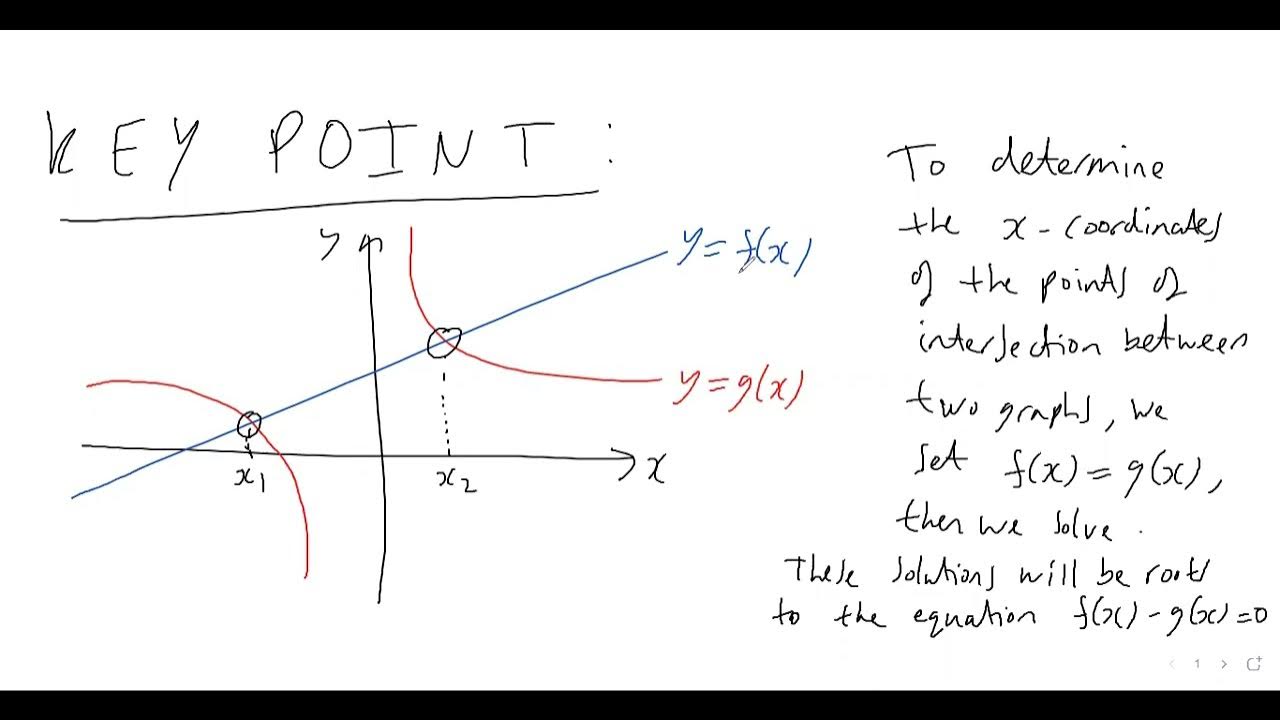 KEY POINT:
y
y = f(x)
y = g(x)
x₁
x₂
x
To determine
the x-coordinates
of the points of
intersection between
two graphs, we
set f(x) = g(x),
then we solve.
These solutions will be roots
to the equation f(x) - g(x) = 0
1